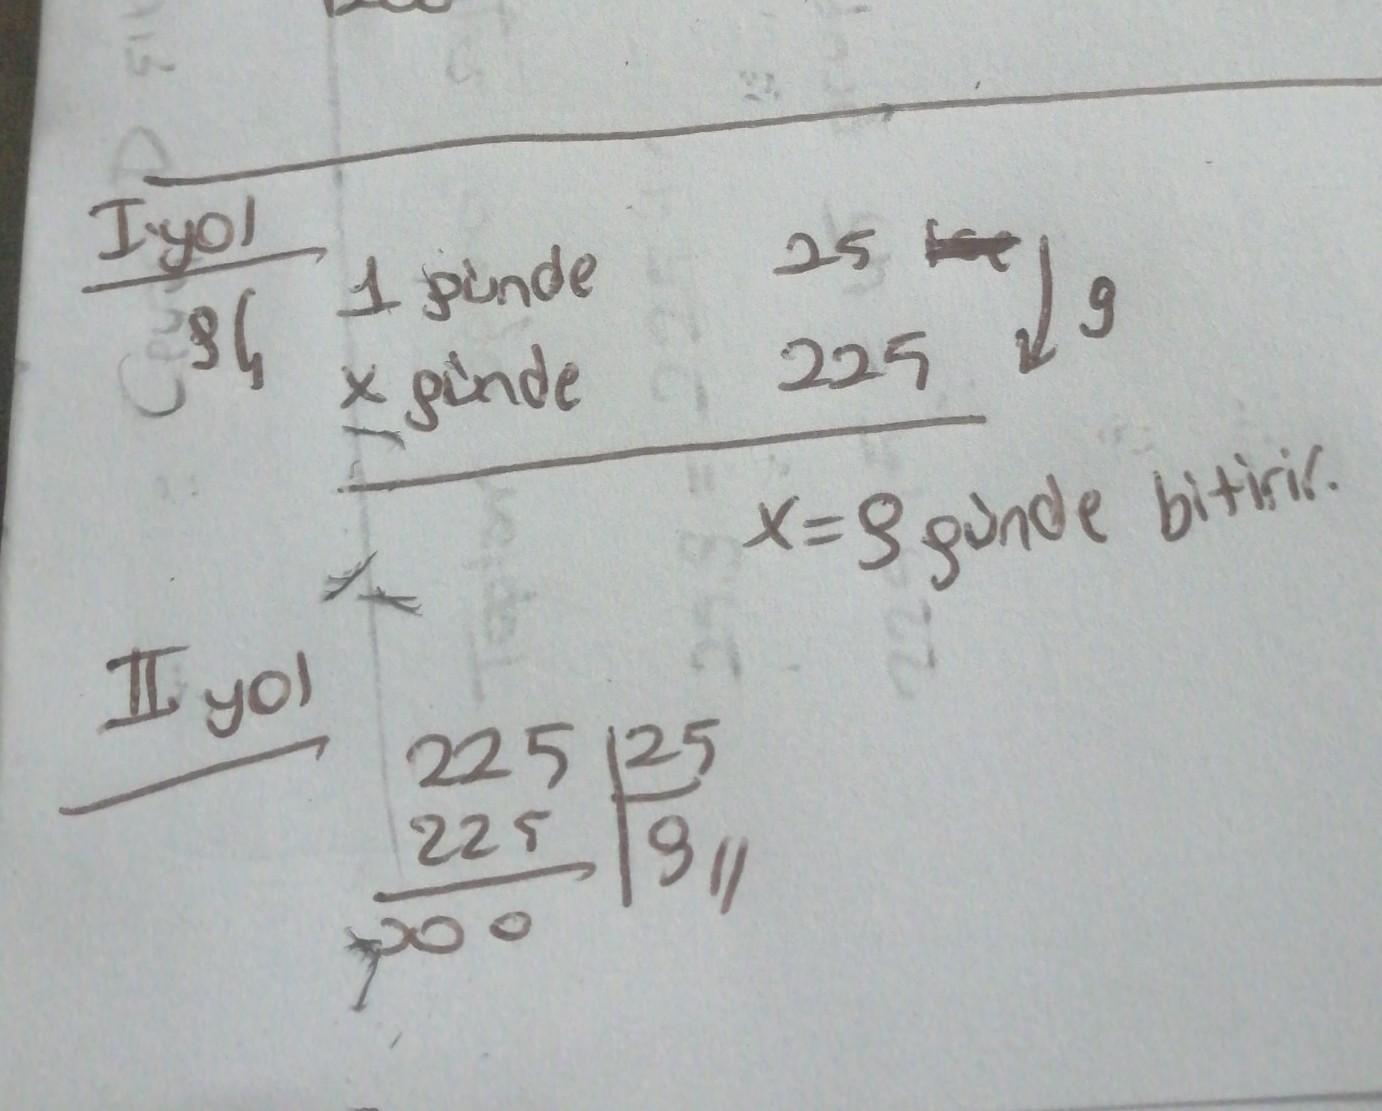 I.yol
9 1 günde 25 9
x günde 225
x=9 günde bitirir.
II yol
225 25
225 9 //
000